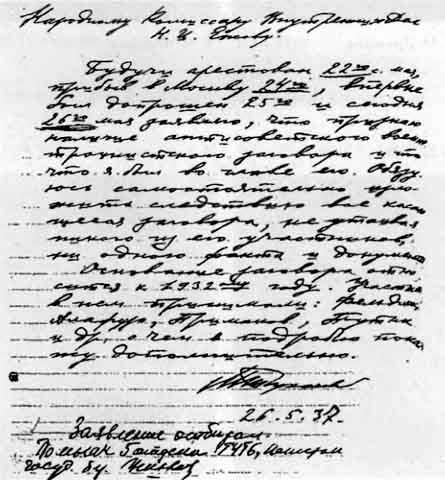 Народному Комиссару Внутренних Дел
Н. И. Ежову.
Будучи арестован 22го с. мая,
прибыв в Москву 24го, впервые
был допрошен 25го и сегодня
26го мая заявляю, что признаю
наличие антисоветского воен
троцкистского заговора и то
что я был во главе его. Обязу
юсь самостоятельно изло
жить следствию все касаю
щееся заговора, не утаивая
никого из его участников,
ни одного факта и документа
Основание заговора отно
сится к 1932му году. Участие
в нем принимали: Фельдман,
Алафузо, Примаков, Путна
и др., о чем я подробно пока
жу дополнительно.
26.5.37.
Заявление отобрал:
Пом. нач. 5 отдела ГУГБ, капитан
госуд. б.